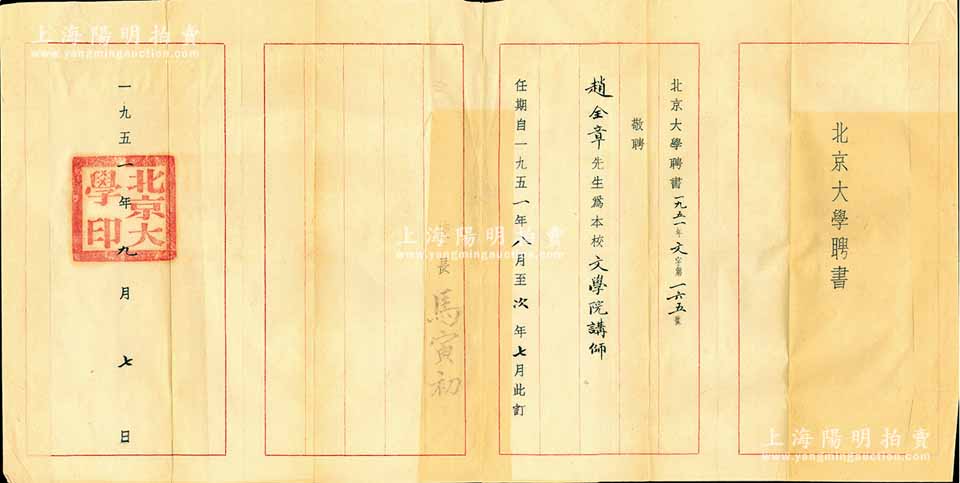 北京大學聘書
北京大學聘書一九五一年文字第一六五號
敬聘
趙全章先生爲本校文學院講師
任期自一九五一年八月至次年七月此訂
長 馬寅初
一九五一年九月七日
北京大學印
上海陽明拍賣
www.yangmingauction.com
上海陽明拍賣
www.yangmingauction.com
上海陽明拍賣
www.yangmingauction.com